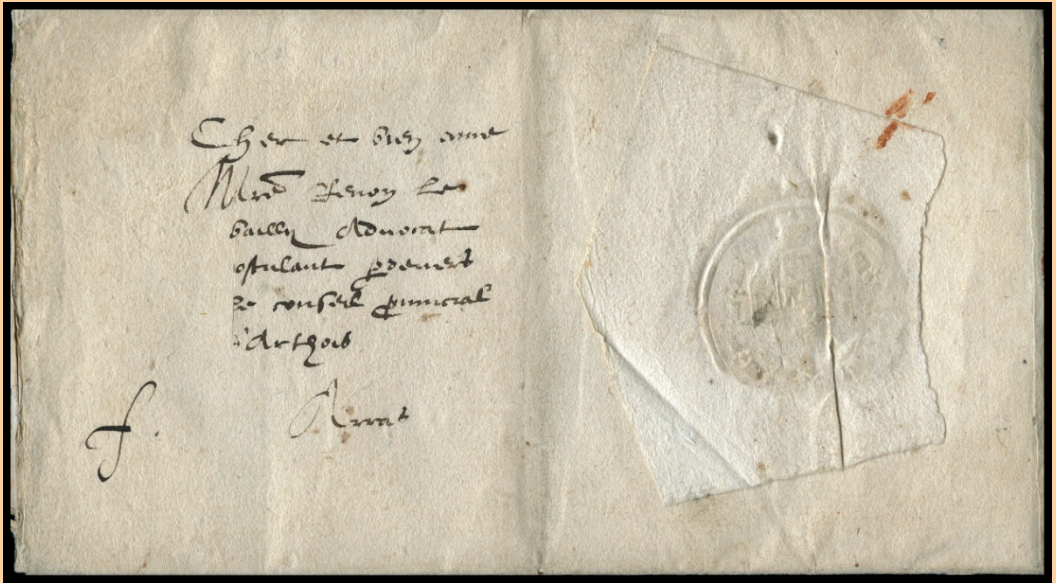 Cher et bien ame
Mre Renon le
bailly Advocat
ostulant pdevers
le conseil provincial
d'Arthois
Arras
f.